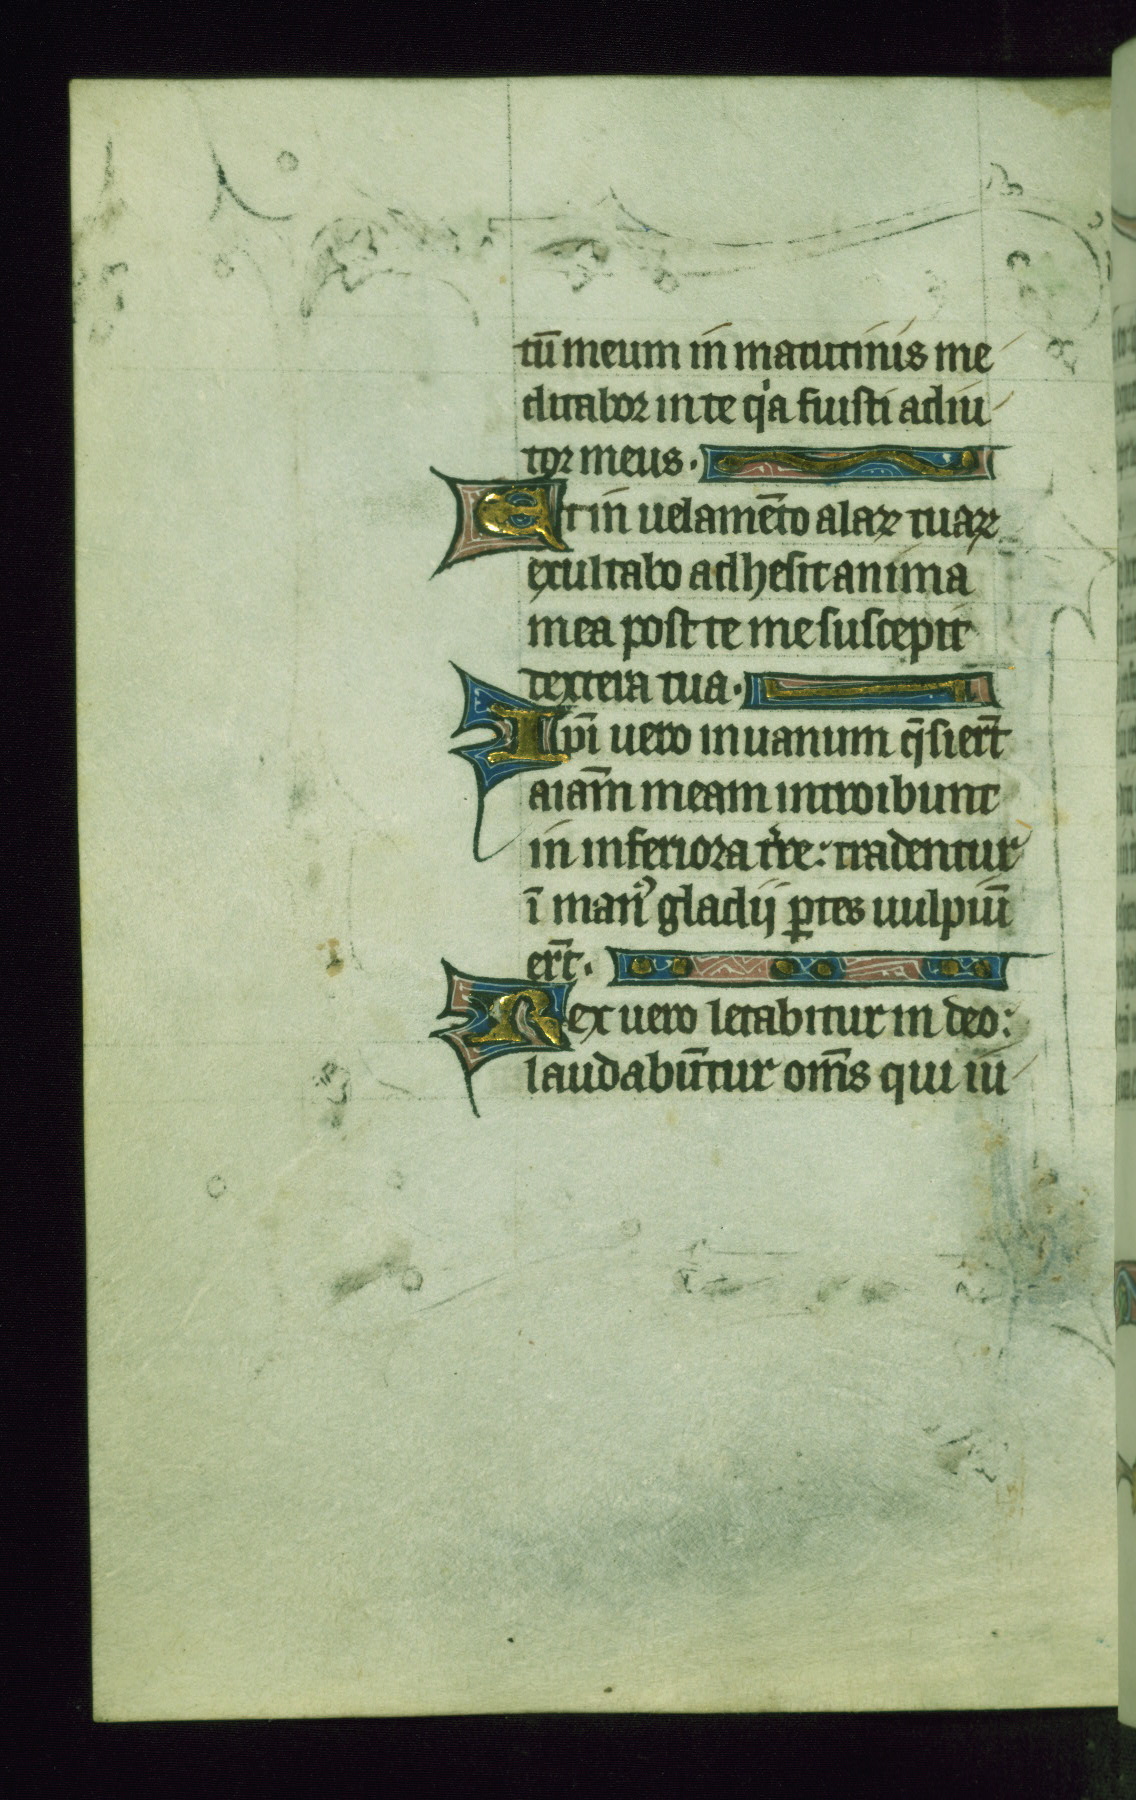 tū meum in matutinis me
ditabor in te qͥa fuisti adiu
tor meus.
Et in uelamēto alaꝝ tuaꝝ
exultabo adhesit anima
mea post te me suscepit
dextera tua.
Ipī uero in uanum q̄sier̄t
aiam̄ meam introibunt
in inferiora t̄re: tradentur
ī manꝰ gladij ꝑtes uulpiū
er̄t.
Rex uero letabitur in deo:
laudabūtur om̄s qui iu